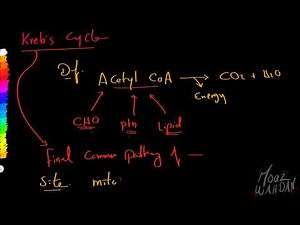 Kreb's Cycle
Def. Acetyl CoA → CO2 + H2O
Energy
CHO ptn Lipid
final Common pathway of —
Site. mito
MOAZ
WAHDAN